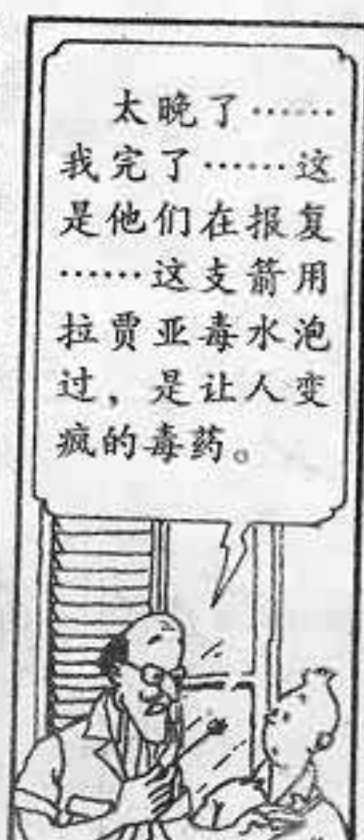 太晚了……
我完了……这
是他们在报复
……这支箭用
拉贾亚毒水泡
过，是让人变
疯的毒药。